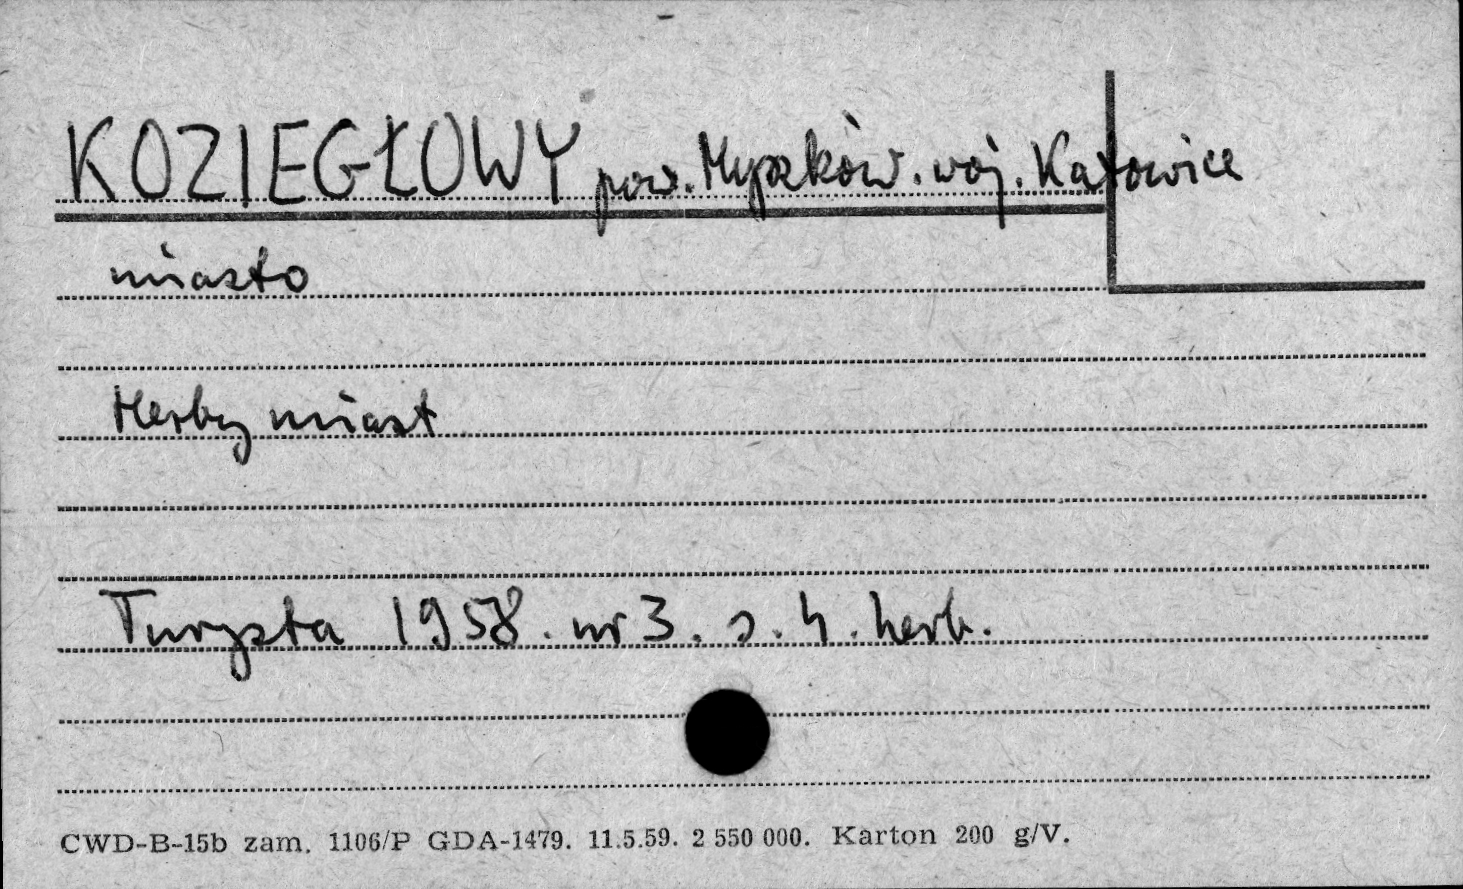 KOZIEGŁOWY pow. Myszków. woj. Katowice
miasto
Herby miast
Turysta 1958. nr 3. s. 4. herb.
CWD-B-15b zam. 1106/P GDA-1479. 11.5.59. 2 550 000. Karton 200 g/V.